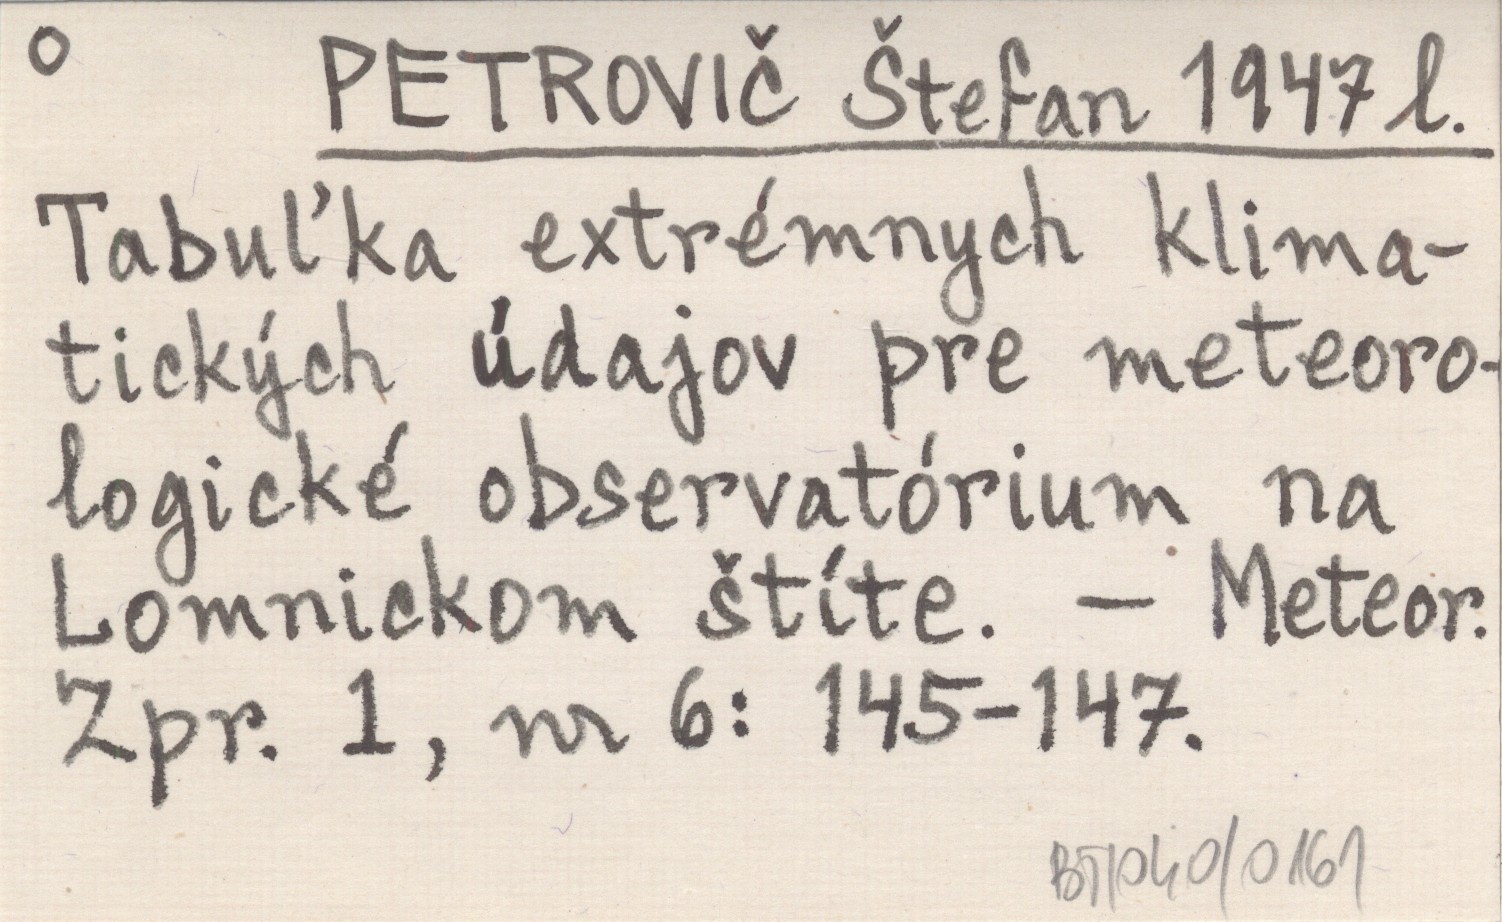 O
PETROVIČ Štefan 1947 l.
Tabuľka extrémnych klima-
tických údajov pre meteoro-
logické observatórium na
Lomnickom štíte. – Meteor.
Zpr. 1, nr 6: 145-147.
BT/040/0161